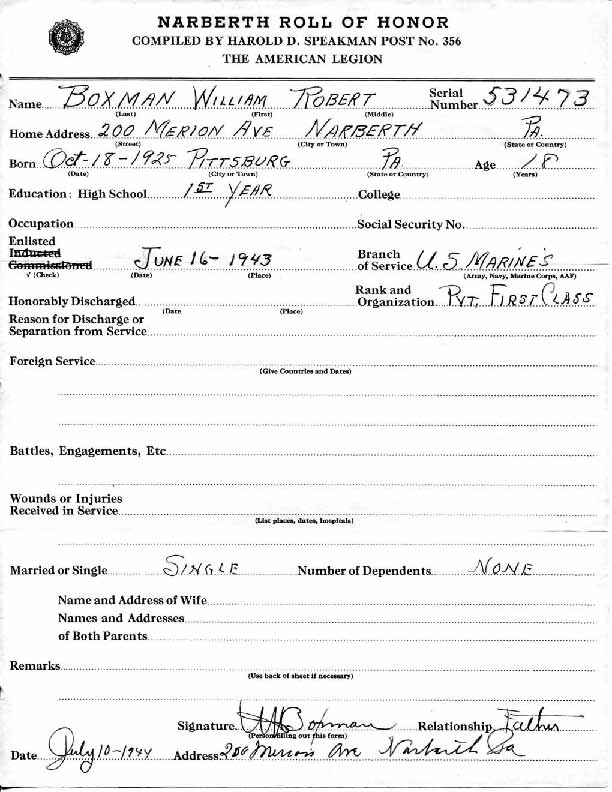 NARBERTH ROLL OF HONOR
COMPILED BY HAROLD D. SPEAKMAN POST No. 356
THE AMERICAN LEGION
Name BOXMAN WILLIAM ROBERT Serial Number 531473
(Last) (First) (Middle)
Home Address 200 MERION AVE NARBERTH PA.
(Street) (City or Town) (State or Country)
Born Oct-18-1925 PITTSBURG PA. Age 18
(Date) (City or Town) (State or Country) (Years)
Education: High School 1ST YEAR College
Occupation Social Security No.
Enlisted
Inducted
Commissioned JUNE 16-1943 Branch of Service U.S. MARINES
√ (Check) (Date) (Place) (Army, Navy, Marine Corps, AAF)
Honorably Discharged Rank and Organization PVT. FIRST CLASS
(Date (Place)
Reason for Discharge or
Separation from Service
Foreign Service
(Give Countries and Dates)
Battles, Engagements, Etc
Wounds or Injuries
Received in Service
(List places, dates, hospitals)
Married or Single SINGLE Number of Dependents NONE
Name and Address of Wife
Names and Addresses
of Both Parents
Remarks
(Use back of sheet if necessary)
Signature Boxman Relationship Father
(Person filling out this form)
Date July 10-1944 Address 200 Merion Ave Narberth Pa